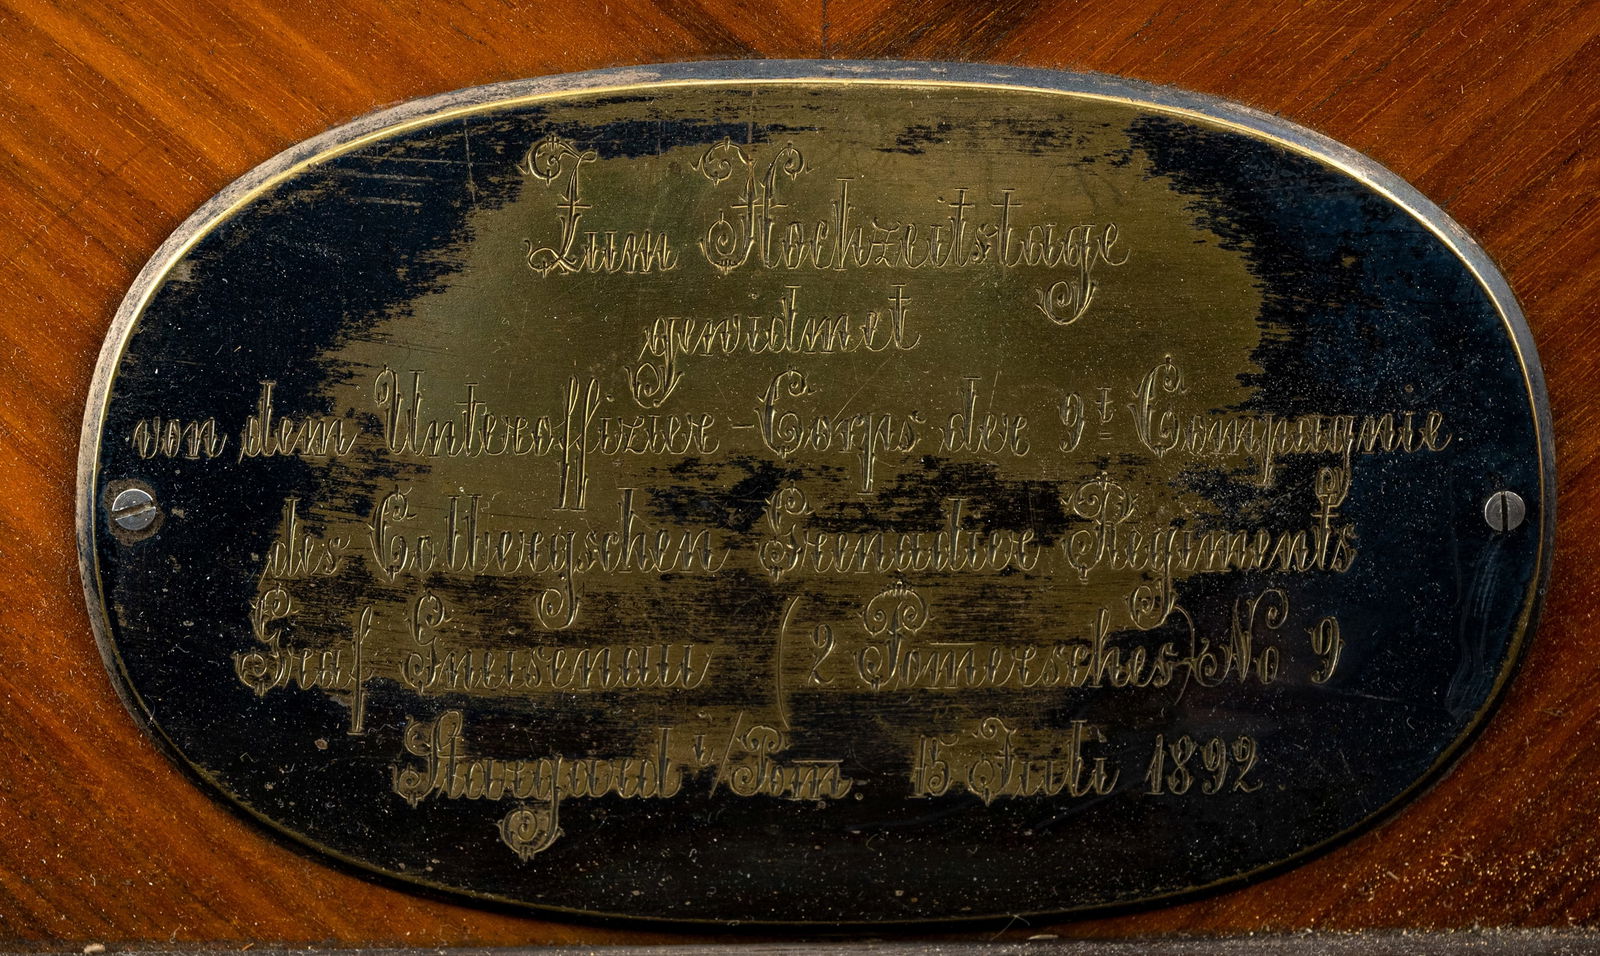 Zum Hochzeitstage
gewidmet
von dem Unteroffizier-Corps der 9t Compagnie
des Colbergschen Grenadier Regiments
Graf Gneisenau (2 Pomersches) No 9
Stargard i/Pom. 15 Juli 1892.